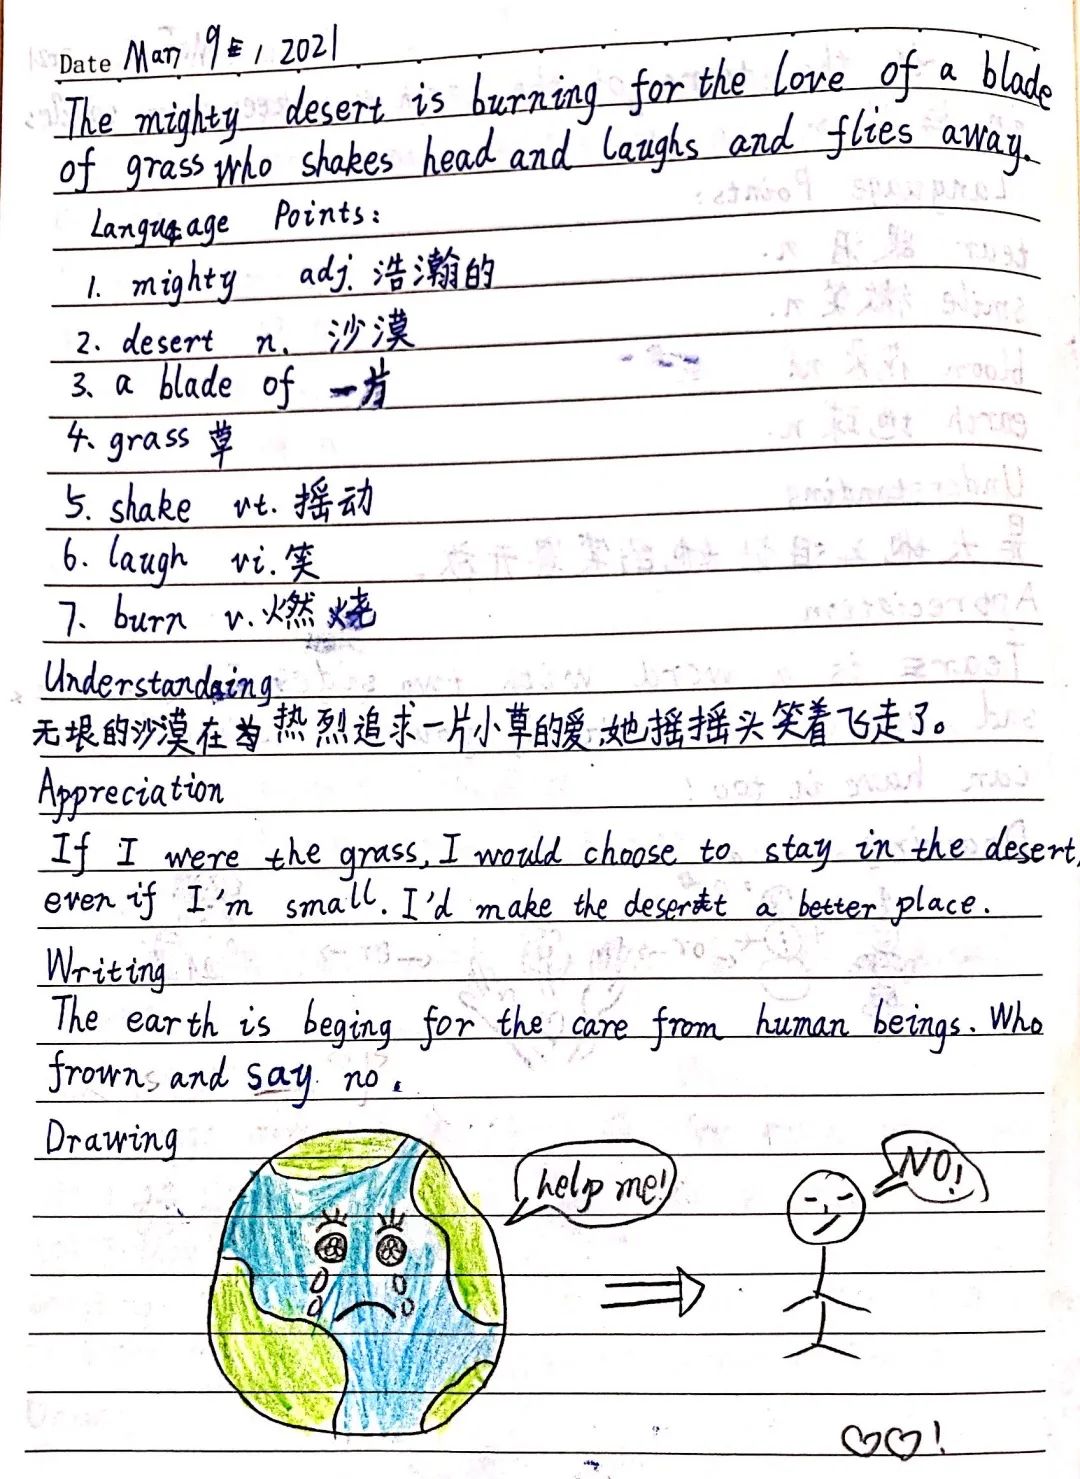 Date Mar 9, 2021
The mighty desert is burning for the love of a blade
of grass who shakes head and laughs and flies away.
Language Points:
1. mighty adj. 浩瀚的
2. desert n. 沙漠
3. a blade of 一片
4. grass 草
5. shake vt. 摇动
6. laugh vi. 笑
7. burn v. 燃烧
Understanding
无垠的沙漠在为热烈追求一片小草的爱,她摇摇头笑着飞走了。
Appreciation
If I were the grass, I would choose to stay in the desert,
even if I'm small. I'd make the desert a better place.
Writing
The earth is beging for the care from human beings. Who
frowns and say no.
Drawing
help me!
NO!